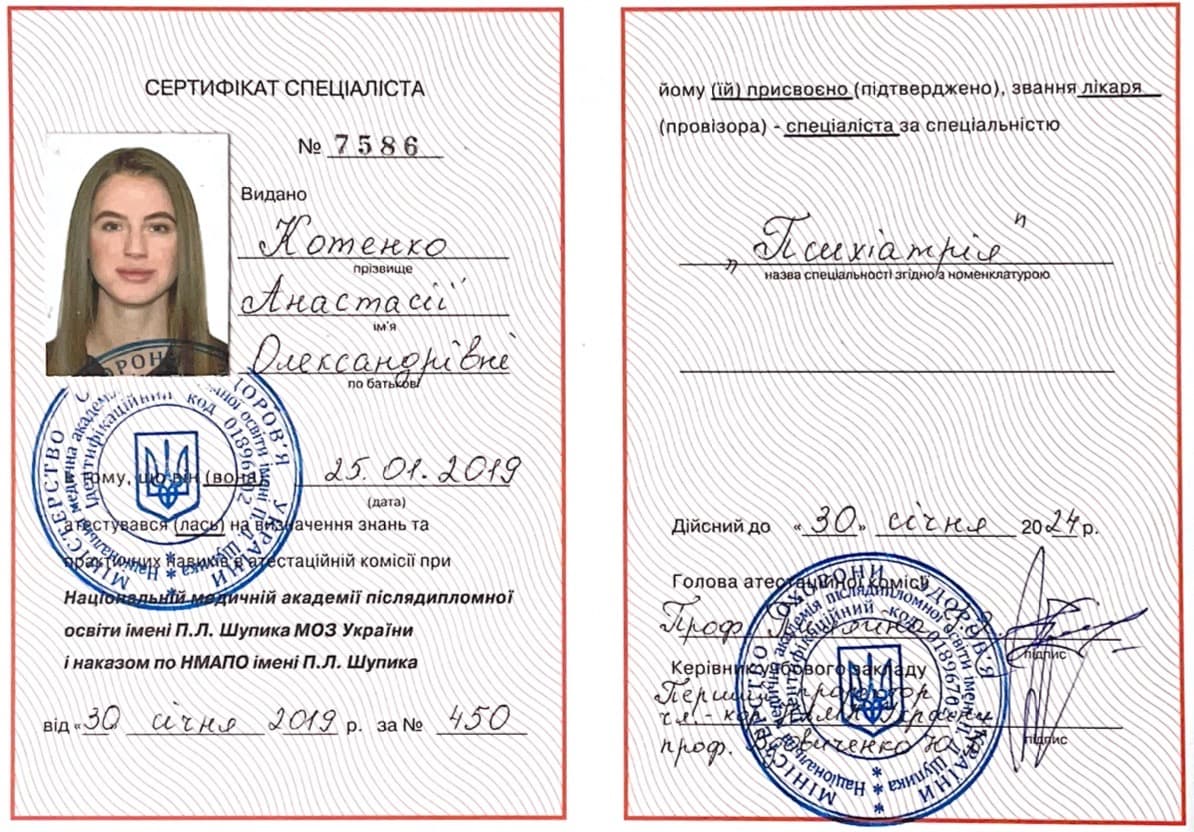 СЕРТИФІКАТ СПЕЦІАЛІСТА
№ 7586
Видано
Котенко
прізвище
Анастасії
ім'я
Олександрівні
по батькові
тому, що він (вона) 25.01.2019
(дата)
атестувався (лась) на визначення знань та
практичних навиків в атестаційній комісії при
Національній медичній академії післядипломної
освіти імені П.Л. Шупика МОЗ України
і наказом по НМАПО імені П.Л. Шупика
від «30» січня 2019 р. за № 450
МІНІСТЕРСТВО ОХОРОНИ ЗДОРОВ'Я УКРАЇНИ
Національна медична академія післядипломної освіти імені П.Л. Шупика
Ідентифікаційний код 01896702
йому (їй) присвоєно (підтверджено), звання лікаря
(провізора) - спеціаліста за спеціальністю
„Психіатрія"
назва спеціальності згідно/з номенклатурою
Дійсний до «30» січня 2024 р.
Голова атестаційної комісії
Проф.
підпис
Керівник учбового закладу
Перший проректор
чл.-кор. НАМН України
проф. Ю.
підпис
МІНІСТЕРСТВО ОХОРОНИ ЗДОРОВ'Я УКРАЇНИ
Національна медична академія післядипломної освіти імені П.Л. Шупика
Ідентифікаційний код 01896702